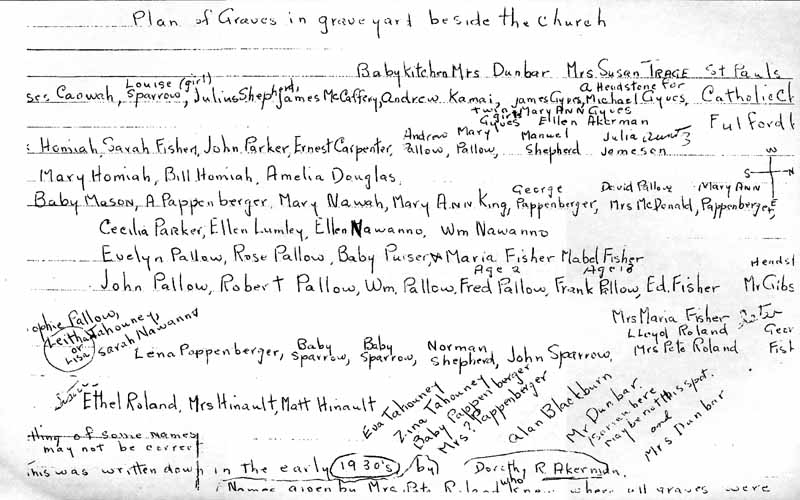 Plan of Graves in graveyard beside the church
Baby Kitchen Mrs Dunbar Mrs. Susan TRAGE St Pauls
Louise (girl) a Headstone for
Caowah, Sparrow, Julius Shepherd, James McCaffery, Andrew Kamai, James Gyves, Michael Gyves, Catholic Ch
twin girls Mary ANN Gyves
Gyves Ellen Akerman Fulford
Andrew Mary Manuel Julia
Homiah, Sarah Fisher, John Parker, Ernest Carpenter, Pallow, Pallow, Shepherd Jemeson
W
Mary Homiah, Bill Homiah, Amelia Douglas, S N
George David Pallow Mary ANN E
Baby Mason, A Pappenberger, Mary Nawah, Mary Ann King, Pappenberger, Mrs McDonald, Pappenberger,
Cecilia Parker, Ellen Lumley, Ellen Nawanno, Wm Nawanno
Evelyn Pallow, Rose Pallow, Baby Purser, Maria Fisher Mabel Fisher Headst
Age 2 Age 18
John Pallow, Robert Pallow, Wm. Pallow, Fred Pallow, Frank Pallow, Ed. Fisher Mr Gibs
ophie Pallow, Mrs Maria Fisher
Leitha Tahouney, Lloyd Roland Geor
or Lisa Sarah Nawanno Mrs Pete Roland Fish
Baby Baby Norman
Lena Pappenberger, Sparrow, Sparrow, Shepherd, John Sparrow,
Ethel Roland, Mrs Hinault, Matt Hinault
Eva Tahouney
Zina Tahouney
Baby Pappenberger
Mrs ? Pappenberger
Alan Blackburn
Mr Dunbar.
is or ian here
maybe not this spot.
and
Mrs Dunbar
thing of some names
may not be correct
This was written down in the early 1930's by Dorothy R. Akerman.
Names given by Mrs. Pete Roland who knew where all graves were